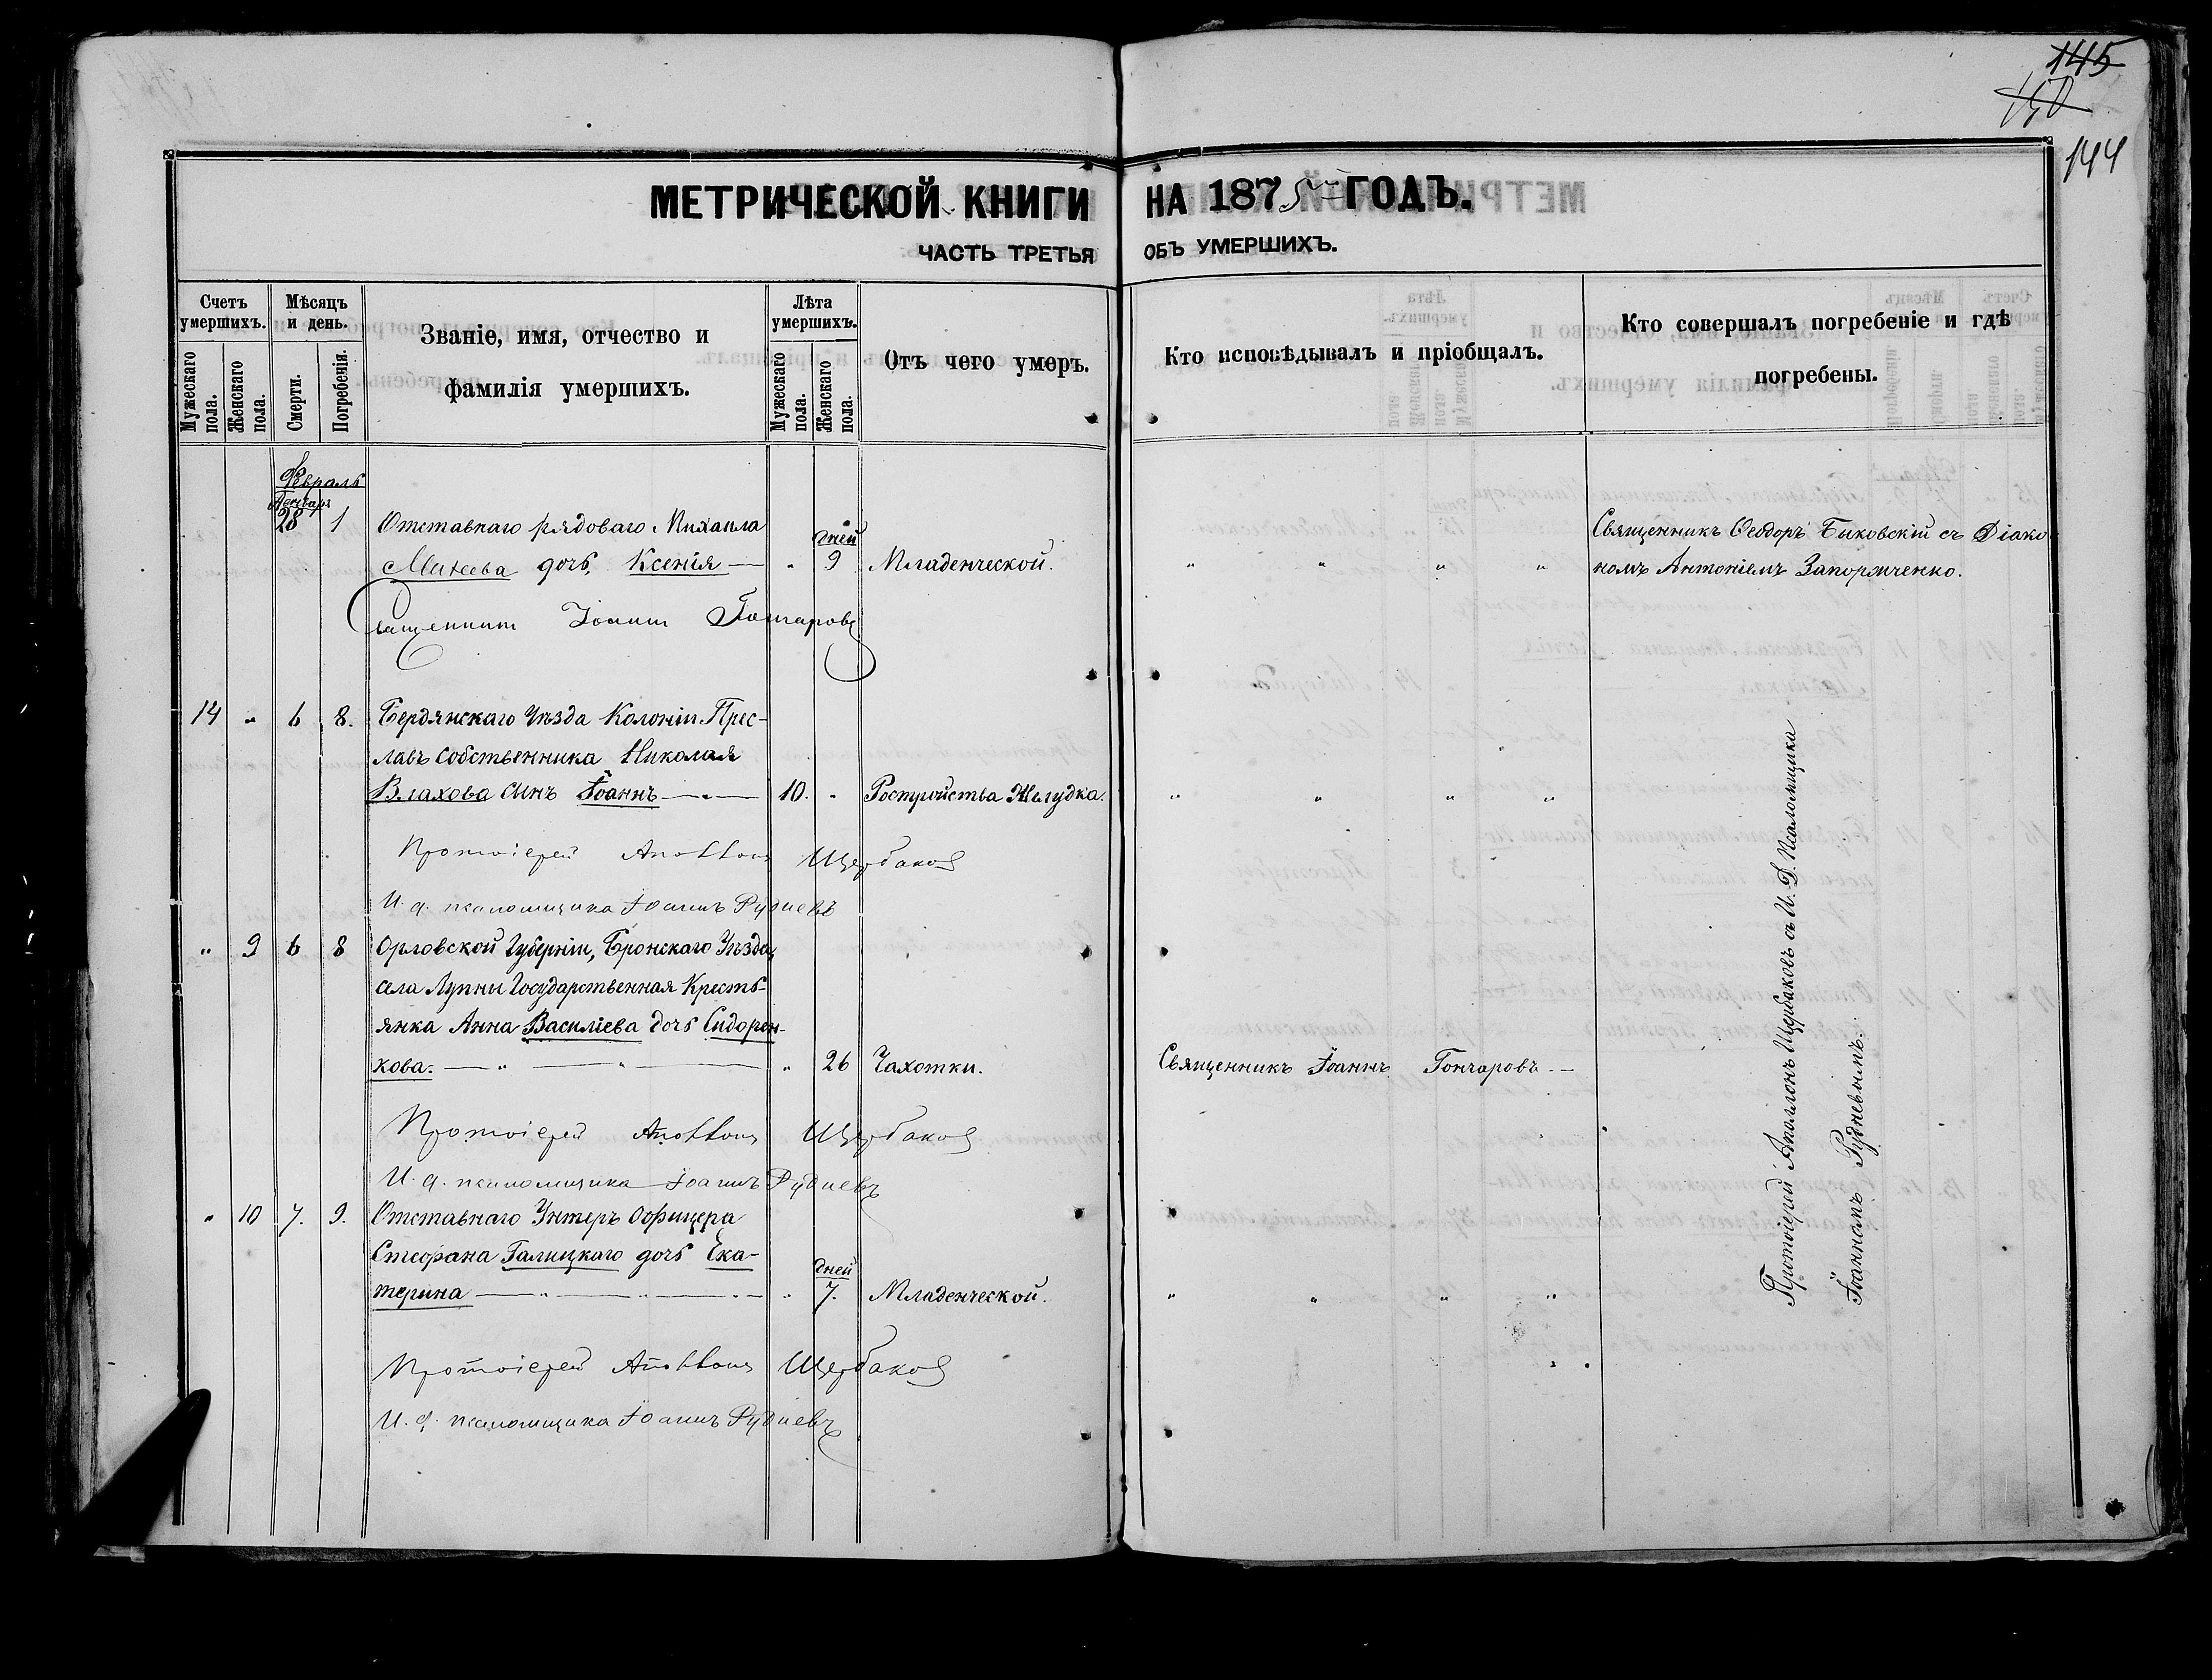 145
150
144
МЕТРИЧЕСКОЙ КНИГИ НА 1875 ГОДЪ.
ЧАСТЬ ТРЕТЬЯ ОБЪ УМЕРШИХЪ.
Счетъ умершихъ.
Мужескаго пола.
Женскаго пола.
Мѣсяцъ и день.
Смерти.
Погребенія.
Званіе, имя, отчество и
фамилія умершихъ.
Лѣта умершихъ.
Мужескаго пола.
Женскаго пола.
Отъ чего умеръ.
Кто исповѣдывалъ и пріобщалъ.
Кто совершалъ погребеніе и гдѣ
погребены.
Февраль
Январь
28 1 Отставнаго рядоваго Михаила
дней
Священникъ Ѳеодоръ Быковскій съ Діако
дочь, Ксенія — „ 9 Младенческой. „ „ „ „ номъ Антоніемъ
Священникъ Іоаннъ Гончаровъ
14 „ 6 8. Бердянскаго Уѣзда Колоніи Прес-
лавъ Собственника Николая
Влахова сынъ Іоаннъ — „ — 10. „ Ростройства Желудка. „ „ „ „
Протоіерей Аполлонъ Щербаковъ
И. д. псаломщика Іоаннъ Рудневъ
„ 9 6 8 Орловской Губерніи, Бронскаго Уѣзда,
села Лупны Государственная Кресть-
янка Анна Василіева дочь Сидорен-
кова. — „ — „ — „ 26 Чахотки. Священникъ Іоаннъ Гончаровъ. —
Протоіерей Аполлонъ Щербаковъ
И. д. псаломщика Іоаннъ Рудневъ
„ 10 7. 9. Отставнаго Унтеръ Офицера
Стефана Галицкаго дочь Ека-
дней
терина — „ — „ — „ — „ 7. Младенческой. „ „ „ „
Протоіерей Аполлонъ Щербаковъ
И. д. псаломщика Іоаннъ Рудневъ
Протоіерей Аполлонъ Щербаковъ съ И. Д. Псаломщика
Іоанномъ Рудневымъ.